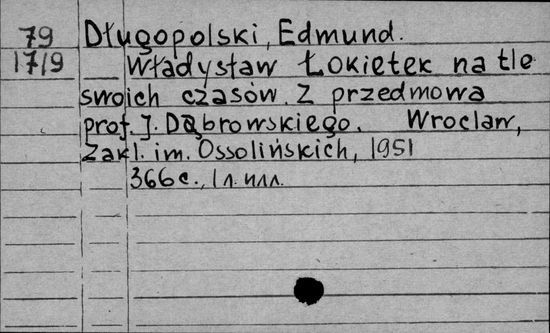 79 Długopolski, Edmund.
17/9 Władysław Łokietek na tle
swoich czasów. Z przedmowa
prof. J. Dąbrowskiego. Wroclaw,
Zakl. im. Ossolińskich, 1951
366 с., 1 л. илл.